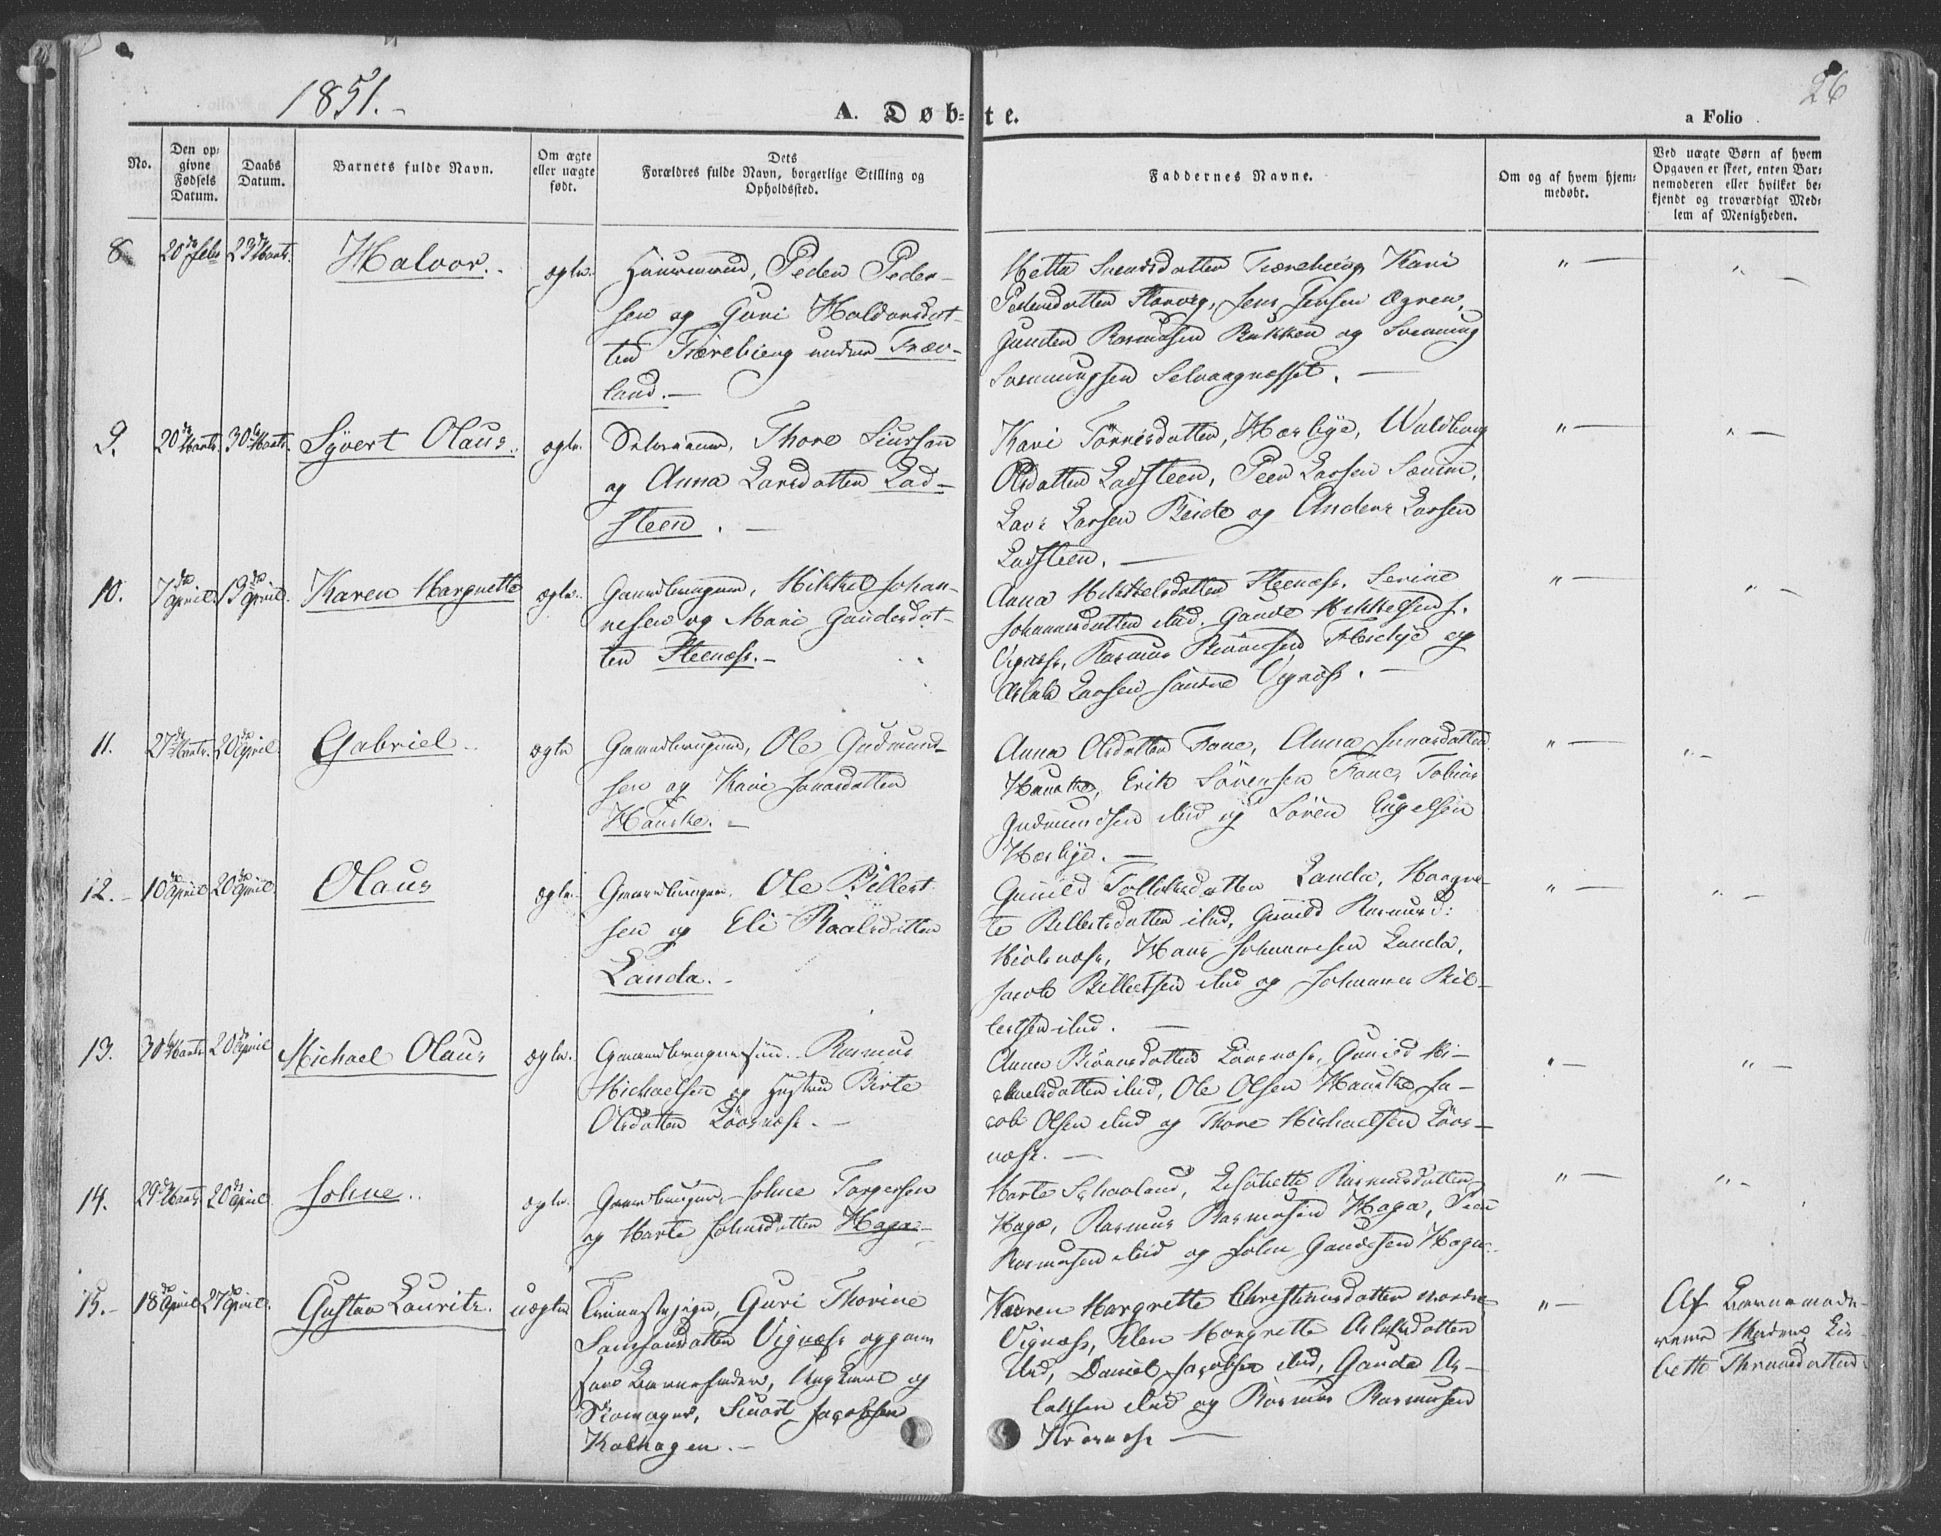 1851.
26
A. Døb=te.
a Folio
No.
Den op=
givne
Fødsels
Datum.
Daabs
Datum.
Barnets fulde Navn.
Om ægte
eller uægte
født.
Dets
Forældres fulde Navn, borgerlige Stilling og
Opholdssted.
Faddernes Navne.
Om og af hvem hjem=
medøbt.
Ved uægte Børn af hvem
Opgaven er skeet, enten Bar=
nemoderen eller hvilket be=
kjendt og troværdigt Med=
lem af Menigheden.
8 20de Febr 23de Marts. Halvor. ægte.
Huusmand, Peder Peder-
sen og Guri Haldorsdat-
ter under Træv-
land.
Svendsdatter Kari
Pedersdatter Jens Jensen
Rasmusen Bakken og Svenning
Svenningsen Selvaagnæsset.
9. 20de Marts. 30te Marts. Syvert Olaus. ægte.
Thore Siursen
og Anna Larsdatter Lad-
steen.
Kari Tørrisdatter, Hæskye, Waldborg
Olsdatter Ladsteen, Peer Larsen
Lars Larsen Beide og Anders Larsen
Ladsteen.
10. 7de April. 19de April. Karen Margrette ægte.
Gaardbruger, Mikkel Johan-
nesen og Mari Gaudesdat-
ter Steenæss.
Anna Mikkelsdatter Steenæss, Serine
Johannesdatter ibid, Gaude Mikkelsen
Vignæss, Rasmus og
Aslak Larsen søndre Vignæss.
11. 27de Marts. 20de April. Gabriel ægte
Gaardbruger, Ole Gudmund-
sen og Kari Jonasdatter
Hauske.
Anna Olsdatter Fane, Anna Jonasdatter
Hauske, Erik Sörensen Fane, Tobias
Gudmundsen ibid og Sören Engelsen
Hæskye.
12. 10de April 20de April. Olaus ægte.
Gaardbruger. Ole Billert
sen og Eli Roalsdatter
Landa.
Gunild Landa,
te Billertsdatter ibid, Gunild Rasmusd:
Hans Johannesen Landa,
Jacob Billertsen ibid og Johannes Bil-
lertsen ibid.
13. 30te Marts. 20de April Michael Olaus ægte.
Rasmus
Michaelsen og Hustru Birte
Olsdatter Lövsnæss.
Anna Lövsnæss, Gunild Mi-
chaelsdatter ibid, Ole Olsen Hauske Ja-
cob Olsen ibid og Thore Michaelsen Lövs-
næss.
14. 29de Marts. 20de April Johne. ægte.
Gaardbruger, Johne Torgersen
og Marte Johnsdatter Haga.
Marte Lisabette Rasmusdatter
Haga, Rasmus Rasmusen Haga, Peer
Rasmusen ibid og John Gaudesen Haga.
15. 18de April 27de April. Gustav Lauritz. uægte
Tjenestepige, Guri Thorine
Vignæss opgav
som Barnefader, Ungkarl og
Skomager, Siuart Jacobsen
Kolhagen.
Karen Margrette Christiansdatter nordre
Vignæss, Elen Margrette Aslaksdatter
ibid, Daniel Jacobsen ibid, Gaude As-
laksen ibid og Rasmus Rasmusen
Af Barnemode-
rens Moder, Lis-
bette